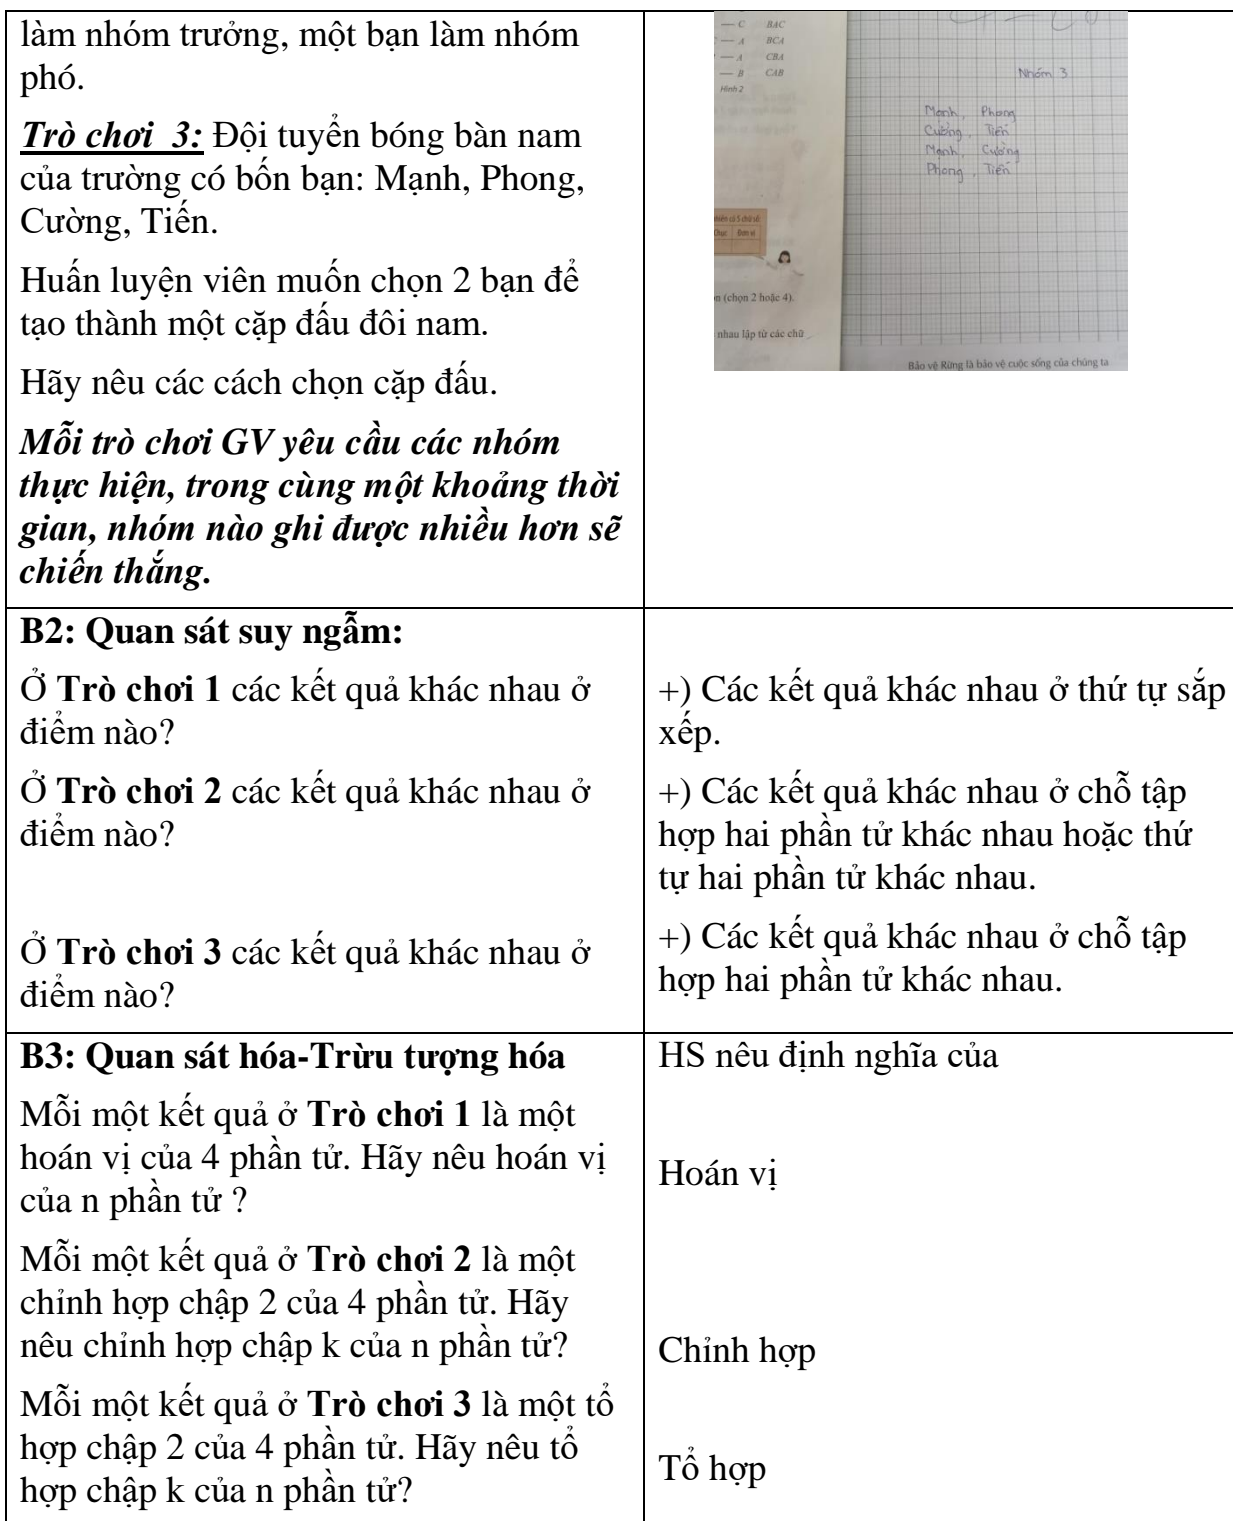 làm nhóm trưởng, một bạn làm nhóm
phó.
Trò chơi 3: Đội tuyển bóng bàn nam
của trường có bốn bạn: Mạnh, Phong,
Cường, Tiến.
Huấn luyện viên muốn chọn 2 bạn để
tạo thành một cặp đấu đôi nam.
Hãy nêu các cách chọn cặp đấu.
Mỗi trò chơi GV yêu cầu các nhóm
thực hiện, trong cùng một khoảng thời
gian, nhóm nào ghi được nhiều hơn sẽ
chiến thắng.
C BAC
A BCA
A CBA
B CAB
Hình 2
(chọn 2 hoặc 4).
nhau lập từ các chữ
Nhóm 3
Mạnh, Phong
Cường, Tiến
Mạnh, Cường
Phong, Tiến
Bảo vệ Rừng là bảo vệ cuộc sống của chúng ta
B2: Quan sát suy ngẫm:
Ở Trò chơi 1 các kết quả khác nhau ở
điểm nào?
Ở Trò chơi 2 các kết quả khác nhau ở
điểm nào?
Ở Trò chơi 3 các kết quả khác nhau ở
điểm nào?
+) Các kết quả khác nhau ở thứ tự sắp
xếp.
+) Các kết quả khác nhau ở chỗ tập
hợp hai phần tử khác nhau hoặc thứ
tự hai phần tử khác nhau.
+) Các kết quả khác nhau ở chỗ tập
hợp hai phần tử khác nhau.
B3: Quan sát hóa-Trừu tượng hóa
Mỗi một kết quả ở Trò chơi 1 là một
hoán vị của 4 phần tử. Hãy nêu hoán vị
của n phần tử ?
Mỗi một kết quả ở Trò chơi 2 là một
chỉnh hợp chập 2 của 4 phần tử. Hãy
nêu chỉnh hợp chập k của n phần tử?
Mỗi một kết quả ở Trò chơi 3 là một tổ
hợp chập 2 của 4 phần tử. Hãy nêu tổ
hợp chập k của n phần tử?
HS nêu định nghĩa của
Hoán vị
Chỉnh hợp
Tổ hợp